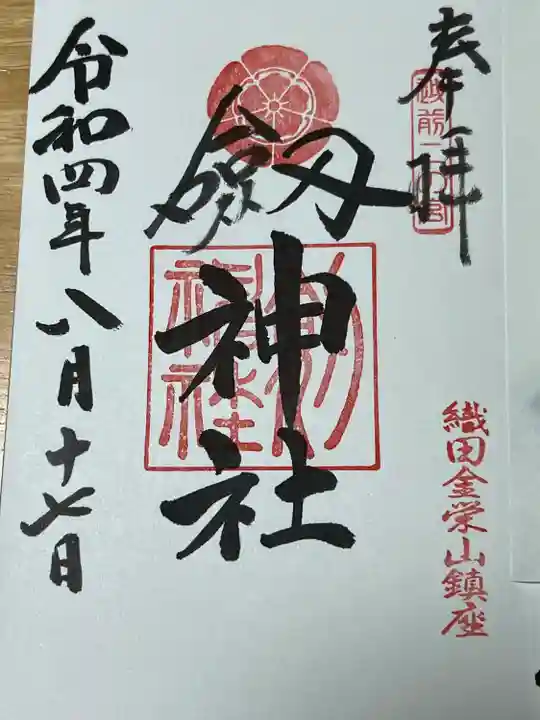 奉拝
越前二ノ宮
織田金栄山鎮座
劔神社
令和四年八月十七日